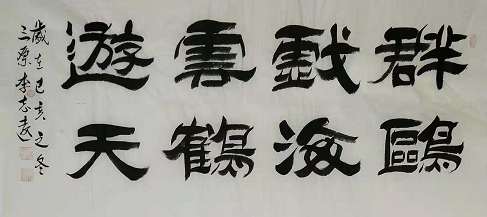 群鷗
戱海
雲鶴
遊天
歲在己亥之冬
三原李志遠